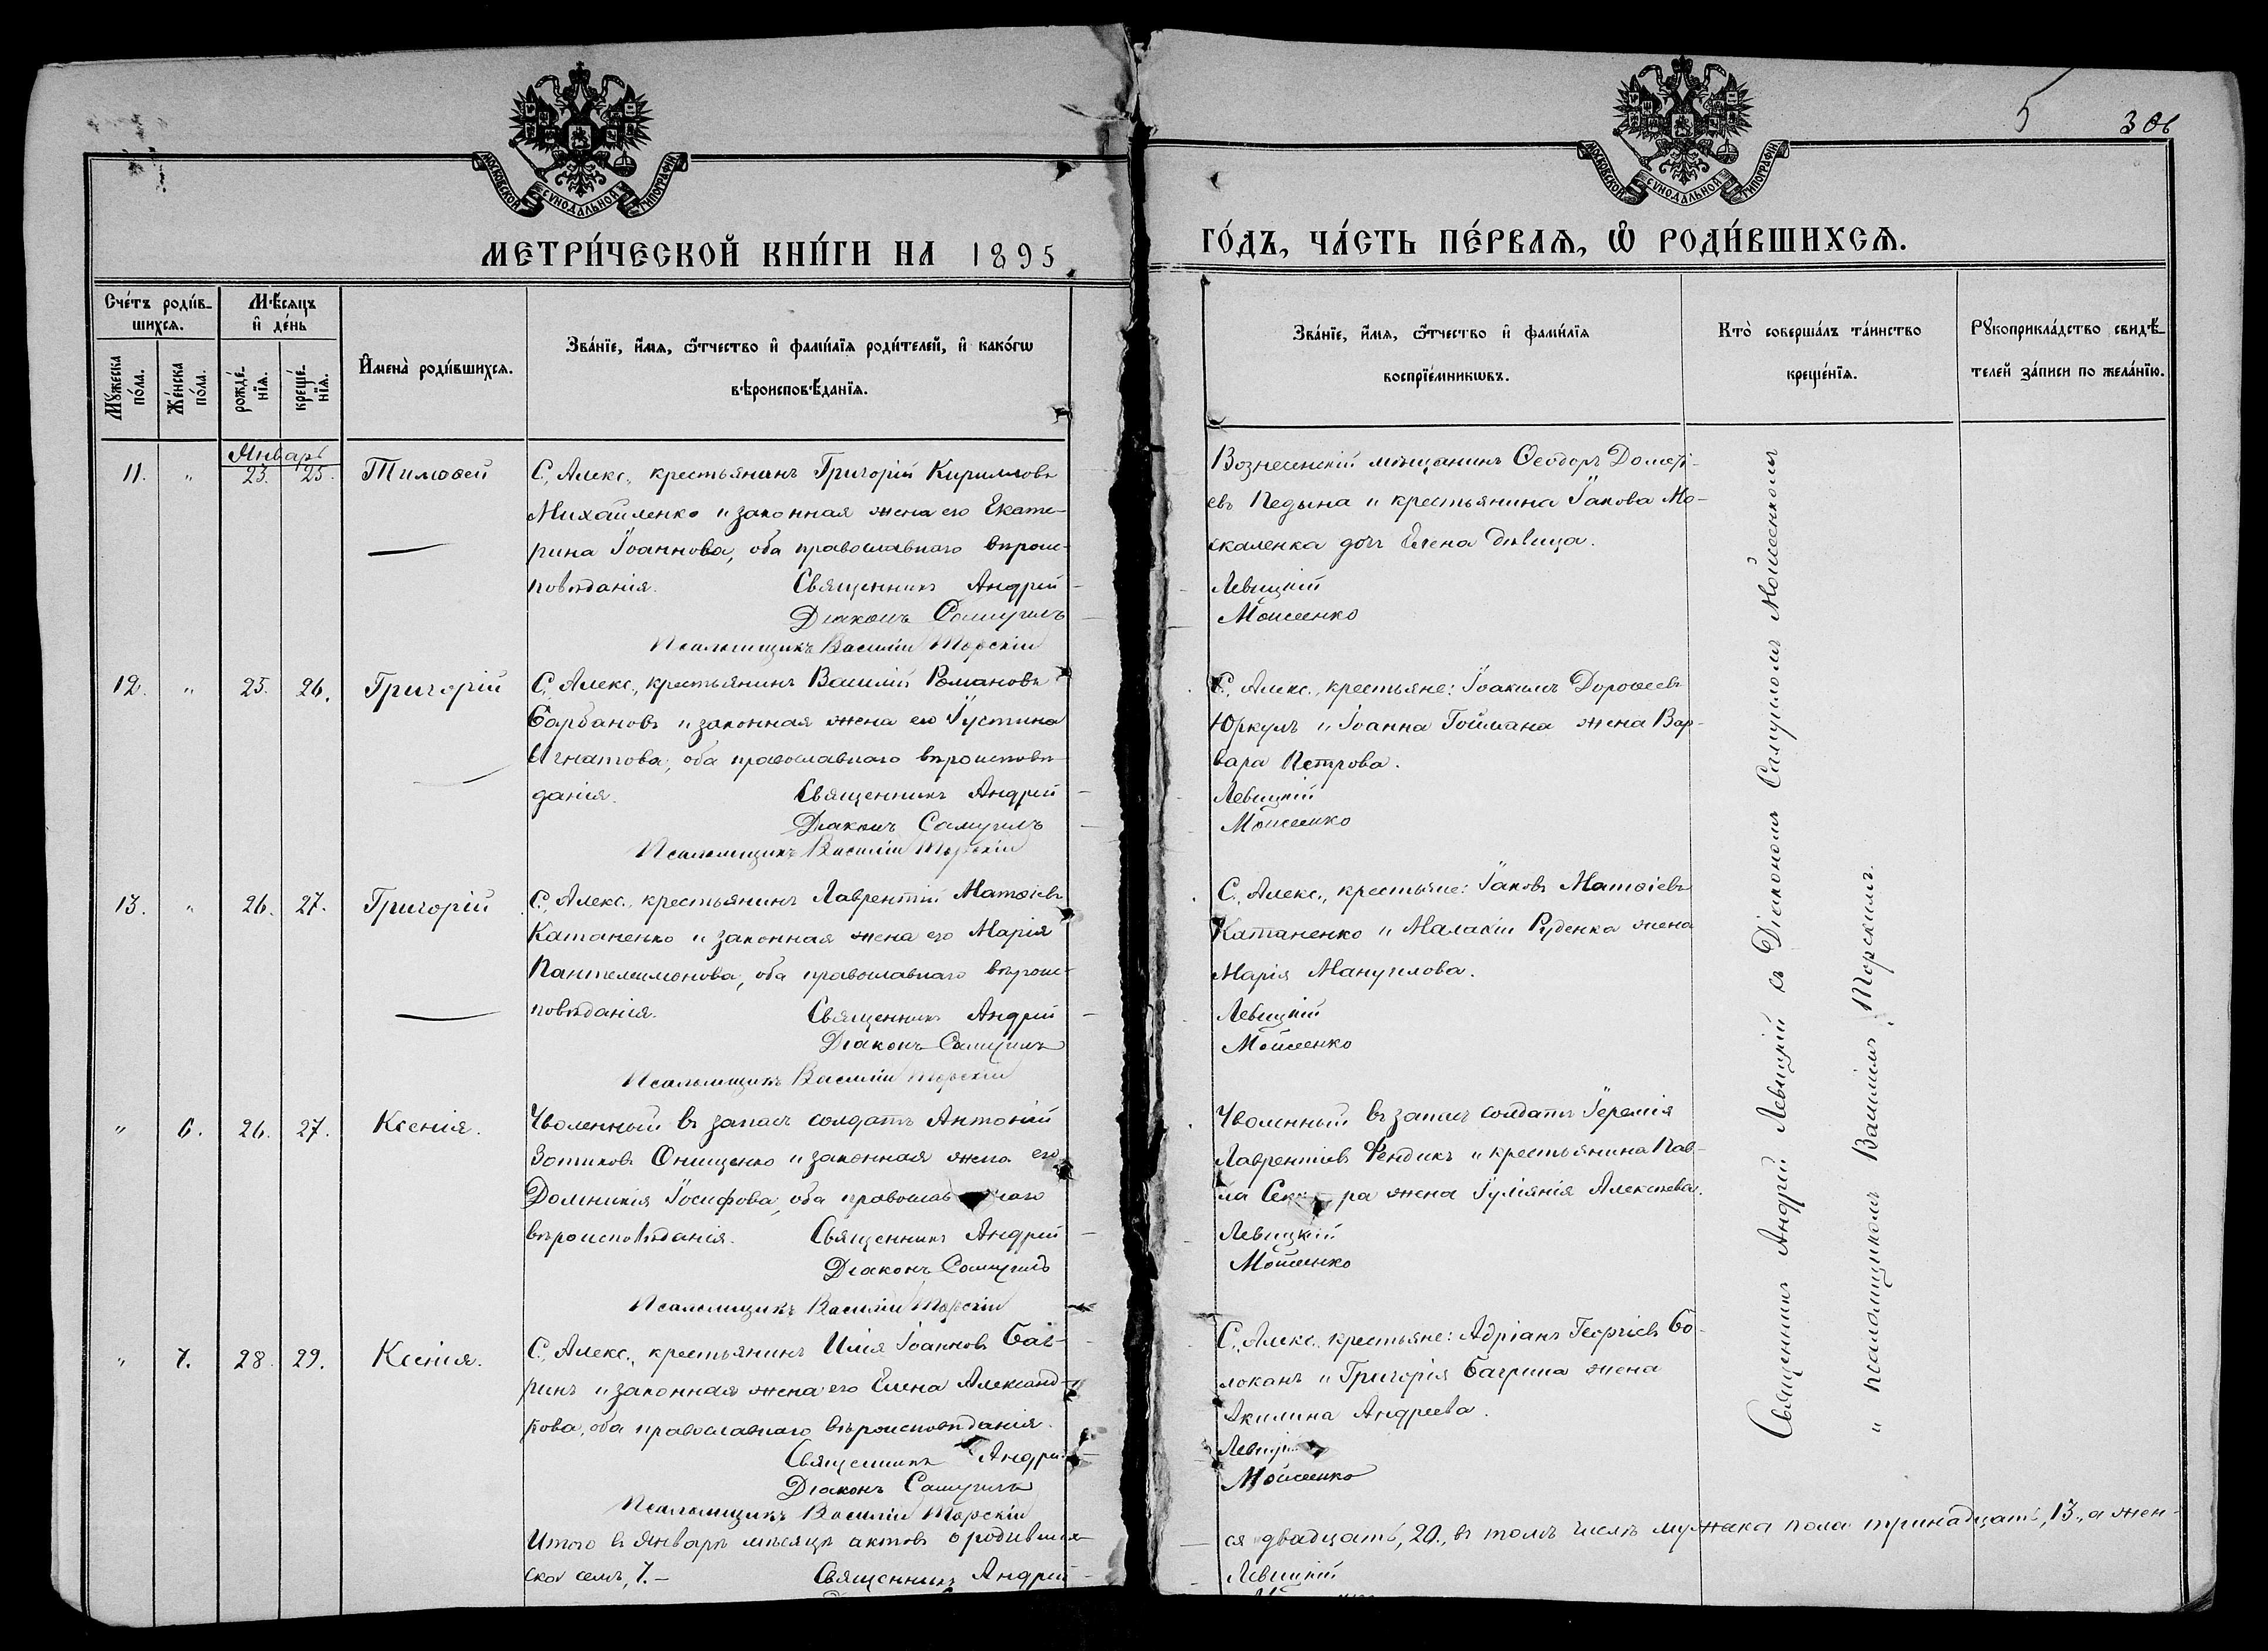 5 306
МОСКОВСКОЙ СѴНОДАЛЬНОЙ ТИПОГРАФІИ
МОСКОВСКОЙ СѴНОДАЛЬНОЙ ТИПОГРАФІИ
МЕТРИ́ЧЕСКОЙ КНИ́ГИ НА 1895
ГО́ДЪ, ЧА́СТЬ ПЕ́РВАѦ, Ѽ РОДИ́ВШИХСѦ.
Сче́тъ роди́в-
шихсѧ.
Мꙋ́жеска по́ла.
Же́нска по́ла.
Мѣ́сяцъ
и҆ де́нь
рожде́-нїѧ.
креще́-нїѧ.
И҆мена̀ роди́вшихсѧ.
Зва́нїе, и҆́мѧ, ѻ҆́тчество и҆ фами́лїѧ роди́телей, и҆ како́гѡ
вѣроисповѣ́данїѧ.
Зва́нїе, и҆́мѧ, ѻ҆́тчество и҆ фами́лїѧ
воспрїе́мникѡвъ.
Кто̀ соверша́лъ та́инство
креще́нїѧ.
Рꙋкоприкла́дство свидѣ́-
телей за́писи по жела́нїю.
Январь
11. " 23. 25. Тимоѳей
С. Алекс., крестьянинъ Григорій Кирилловъ
Михайленко и законная жена его Екате-
рина Іоаннова, оба православнаго вѣроис-
повѣданія. Священникъ Андрей
Діаконъ Самуилъ
Псаломщикъ Василій Торскій
Вознесенскій мѣщанинъ Ѳеодоръ Дометі-
евъ Педына и крестьянина Іакова Мо-
скаленка дочь Елена дѣвица.
Левицкій
Моисеенко
12. " 25. 26. Григорій
С. Алекс., крестьянинъ Василій Романовъ
Барбановъ и законная жена его Іустина
Игнатова, оба православнаго вѣроисповѣ-
данія. Священникъ Андрей
Діаконъ Самуилъ
Псаломщикъ Василій Торскій
С. Алекс., крестьяне: Іоакимъ Дороѳеевъ
Юркулъ и Іоанна Гоймана жена Вар-
вара Петрова.
Левицкій
Моисеенко
13. " 26. 27. Григорій
С. Алекс., крестьянинъ Лаврентій Матѳіевъ
Катаненко и законная жена его Марія
Пантелеимонова, оба православнаго вѣроис-
повѣданія. Священникъ Андрей
Діаконъ Самуилъ
Псаломщикъ Василій Торскій
С. Алекс., крестьяне: Іаковъ Матѳіевъ
Катаненко и Малахіи Руденка жена
Марія Мануилова.
Левицкій
Моисеенко
" 6. 26. 27. Ксенія.
Уволенный въ запасъ солдатъ Антоній
Зотиковъ Онищенко и законная жена его
Домникія Іосифова, оба православнаго
вѣроисповѣданія. Священникъ Андрей
Діаконъ Самуилъ
Псаломщикъ Василій Торскій
Уволенный въ запасъ солдатъ Іеремія
Лаврентіевъ Фендикъ и крестьянина Пав-
ла жена Іуліянія Алексѣева.
Левицкій
Моисеенко
" 7. 28. 29. Ксенія.
С. Алекс., крестьянинъ Илія Іоанновъ Баг-
ринъ и законная жена его Елена Александ-
рова, оба православнаго вѣроисповѣданія.
Священникъ Андрей
Діаконъ Самуилъ
Псаломщикъ Василій Торскій
С. Алекс. крестьяне: Адріанъ Георгіевъ Бо-
локанъ и Григорія Багрина жена
Акилина Андреева.
Левицкій
Моисеенко
Итого въ Январѣ мѣсяцѣ актовъ о родивших-
ся двадцать, 20., въ томъ числѣ мужска пола тринадцать, 13., а жен-
ска семь, 7.— Священникъ Андрей
Левицкій
Священникъ Андрей Левицкій съ Діакономъ Самуиломъ Моисеенкомъ
и псаломщикомъ Василіемъ Торскимъ.